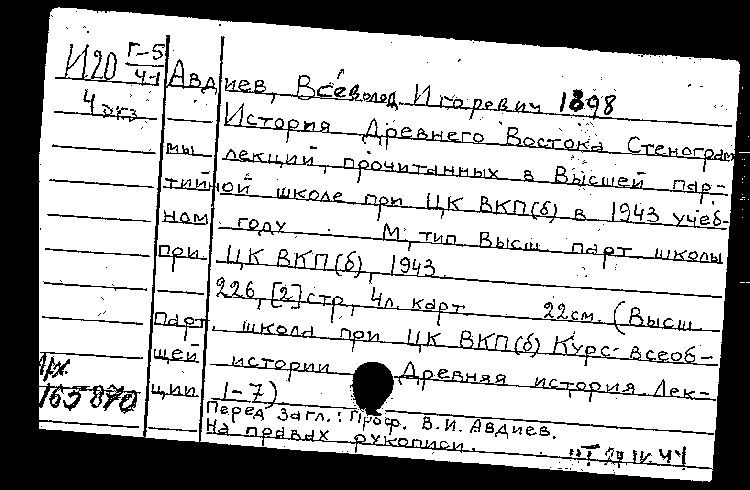 И20 Г-5
Ч-1
Авдиев, Всеволод Игоревич 1898
4 экз
История Древнего Востока Стенограм
мы лекций, прочитанных в Высшей пар-
тийной школе при ЦК ВКП(б) в 1943 учеб-
ном году М, тип Высш парт школы
при ЦК ВКП(б), 1943.
226, [2] стр, 4л. карт. 22см. (Высш
парт. школа при ЦК ВКП(б) Курс всеоб-
щей истории Древняя история. Лек-
ции 1-7)
Арх
165870
Перед загл.: Проф. В.И. Авдиев.
На правах рукописи.